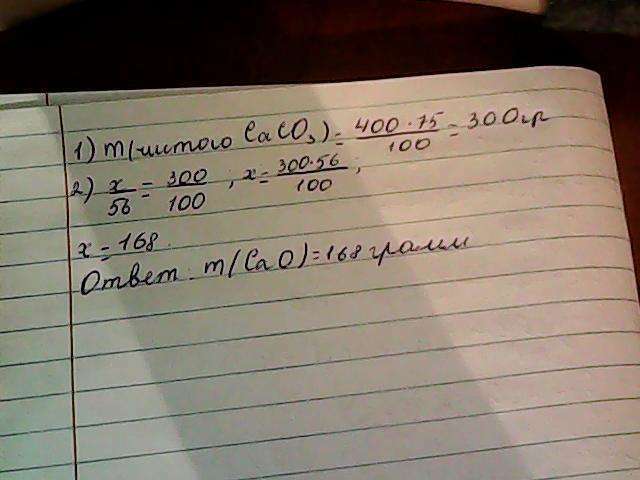 1) m(чистого CaCO3) = 400·75/100 = 300гр
2) x/56 = 300/100 ; x = 300·56/100 ;
x = 168.
Ответ: m(CaO) = 168 грамм